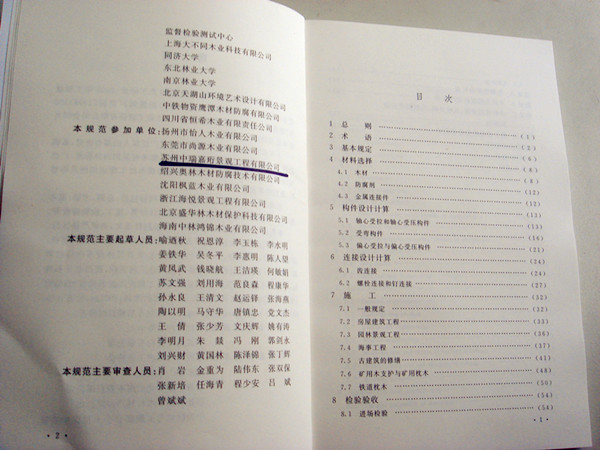 监督检验测试中心
上海大不同木业科技有限公司
同济大学
东北林业大学
南京林业大学
北京天湖山环境艺术设计有限公司
中铁物资鹰潭木材防腐有限公司
四川省恒希木业有限责任公司
本规范参加单位:扬州市怡人木业有限公司
东莞市尚源木业有限公司
苏州中瑞嘉珩景观工程有限公司
绍兴奥林木材防腐技术有限公司
沈阳枫蓝木业有限公司
浙江海悦景观工程有限公司
北京盛华林木材保护科技有限公司
海南中林鸿锦木业有限公司
本规范主要起草人员:喻迺秋 祝恩淳 李玉栋 李水明
姜铁华 吴冬平 李惠明 陈人望
黄凤武 钱晓航 王洁瑛 何敏娟
苏文强 刘用海 范良森 程康华
孙永良 王清文 赵运铎 张海燕
陶以明 马守华 唐镇忠 党文杰
王倩 张少芳 文庆辉 姚有涛
李明月 朱燚 冯刚 郭剑永
刘兴财 黄国林 陈泽锦 张丁辉
本规范主要审查人员:肖岩 金重为 陆伟东 张双保
张新培 任海青 程少安 吕斌
曾斌斌
· 2 ·
目次
1 总则 (1)
2 术语 (2)
3 基本规定 (6)
4 材料选择 (7)
4.1 木材 (7)
4.2 防腐剂 (7)
4.3 金属连接件 (12)
5 构件设计计算 (13)
5.1 轴心受拉和轴心受压构件 (13)
5.2 受弯构件 (17)
5.3 偏心受拉与偏心受压构件 (21)
6 连接设计计算 (24)
6.1 齿连接 (24)
6.2 螺栓连接和钉连接 (27)
7 施工 (32)
7.1 一般规定 (32)
7.2 房屋建筑工程 (33)
7.3 园林景观工程 (36)
7.4 海事工程 (38)
7.5 古建筑的修缮 (41)
7.6 矿用木支护与矿用枕木 (48)
7.7 铁道枕木 (50)
8 检验验收 (54)
8.1 进场检验 (54)
· 1 ·